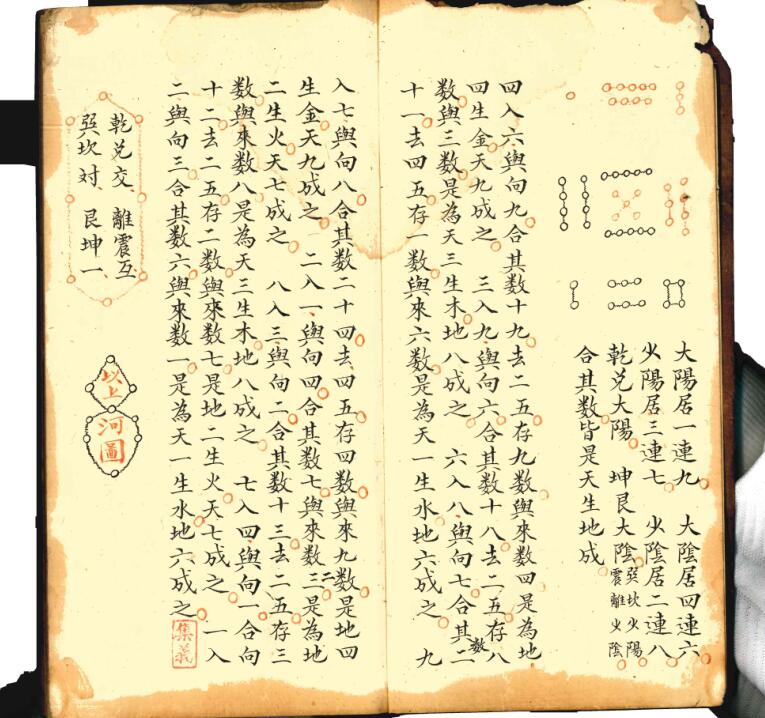 大陽居一連九　大陰居四連六
少陽居三連七　少陰居二連八
乾兌大陽　坤艮大陰　巽坎少陽
震離少陰
合其数皆是天生地成
四入六與向九合其数十九去二五存九数與來数四是為地
四生金天九成之　三入九與向六合其数十八去二五存八
数與三数是為天三生木地八成之　六入八與向七合其数二
十一去四五存一数與來六数是為天一生水地六成之　九
入七與向八合其数二十四去四五存四数與來九数是地四
生金天九成之　二入一與向四合其数七與來数三二是為地
二生火天七成之　八入三與向二合其数十三去二五存三
数與來数八是為天三生木地八成之　七入四與向一合向
十二去二五存二数與來数七是地二生火天七成之　一入
二與向三合其数六與來数一是為天一生水地六成之　集義
乾兌交　離震互
巽坎対　艮坤一
以上
河圖